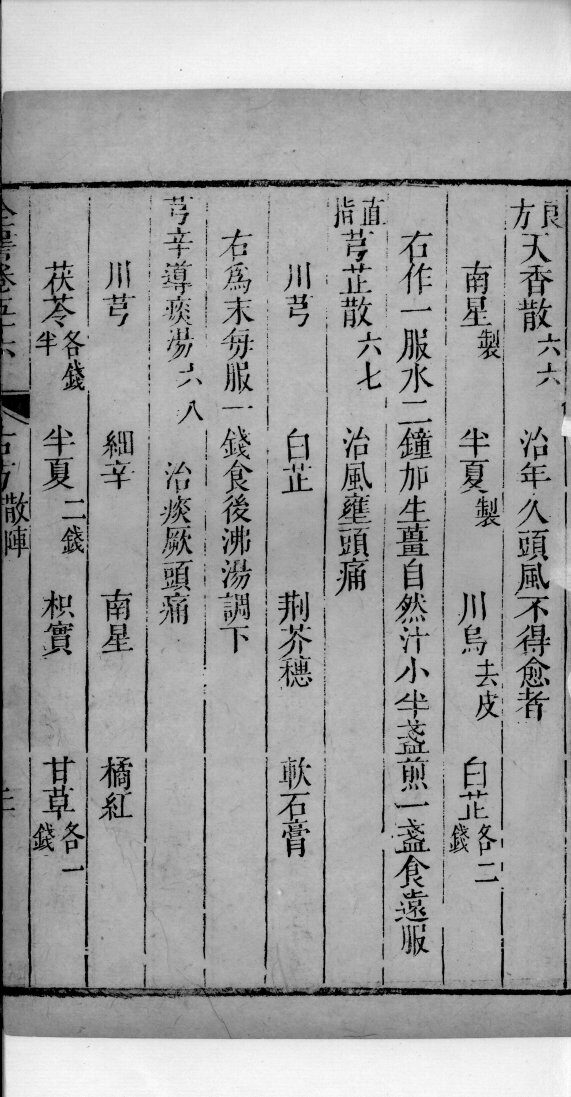 良方天香散六六　治年久頭風不得愈者
南星製　半夏製　川烏去皮　白芷各二錢
右作一服水二鐘加生薑自然汁小半盞煎一盞食遠服
直指芎芷散六七　治風壅頭痛
川芎　白芷　荆芥穗　軟石膏
右爲末每服一錢食後沸湯調下
芎辛導痰湯六八　治痰厥頭痛
川芎　細辛　南星　橘紅
茯苓各錢半　半夏二錢　枳實　甘草各一錢
全書卷五十六　古方散陣